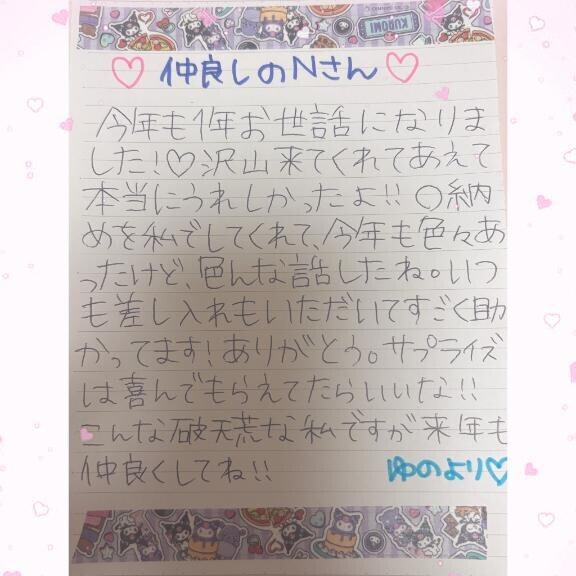 KUROMI
仲良しのNさん
今年も1年お世話になりま
した!♡沢山来てくれてあえて
本当にうれしかったよ!!○納
めを私でしてくれて、今年も色々あ
ったけど、色んな話したね。いつ
も差し入れもいただいてすごく助
かってます!ありがとう。サプライズ
は喜んでもらえてたらいいな!!
こんな破天荒な私ですが来年も
仲良くしてね!!
ゆのより♡